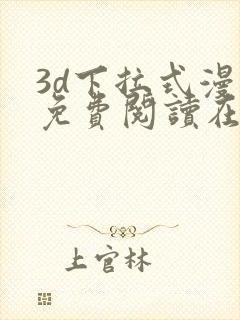 3d下拉式漫
免费閱讀在
上官林